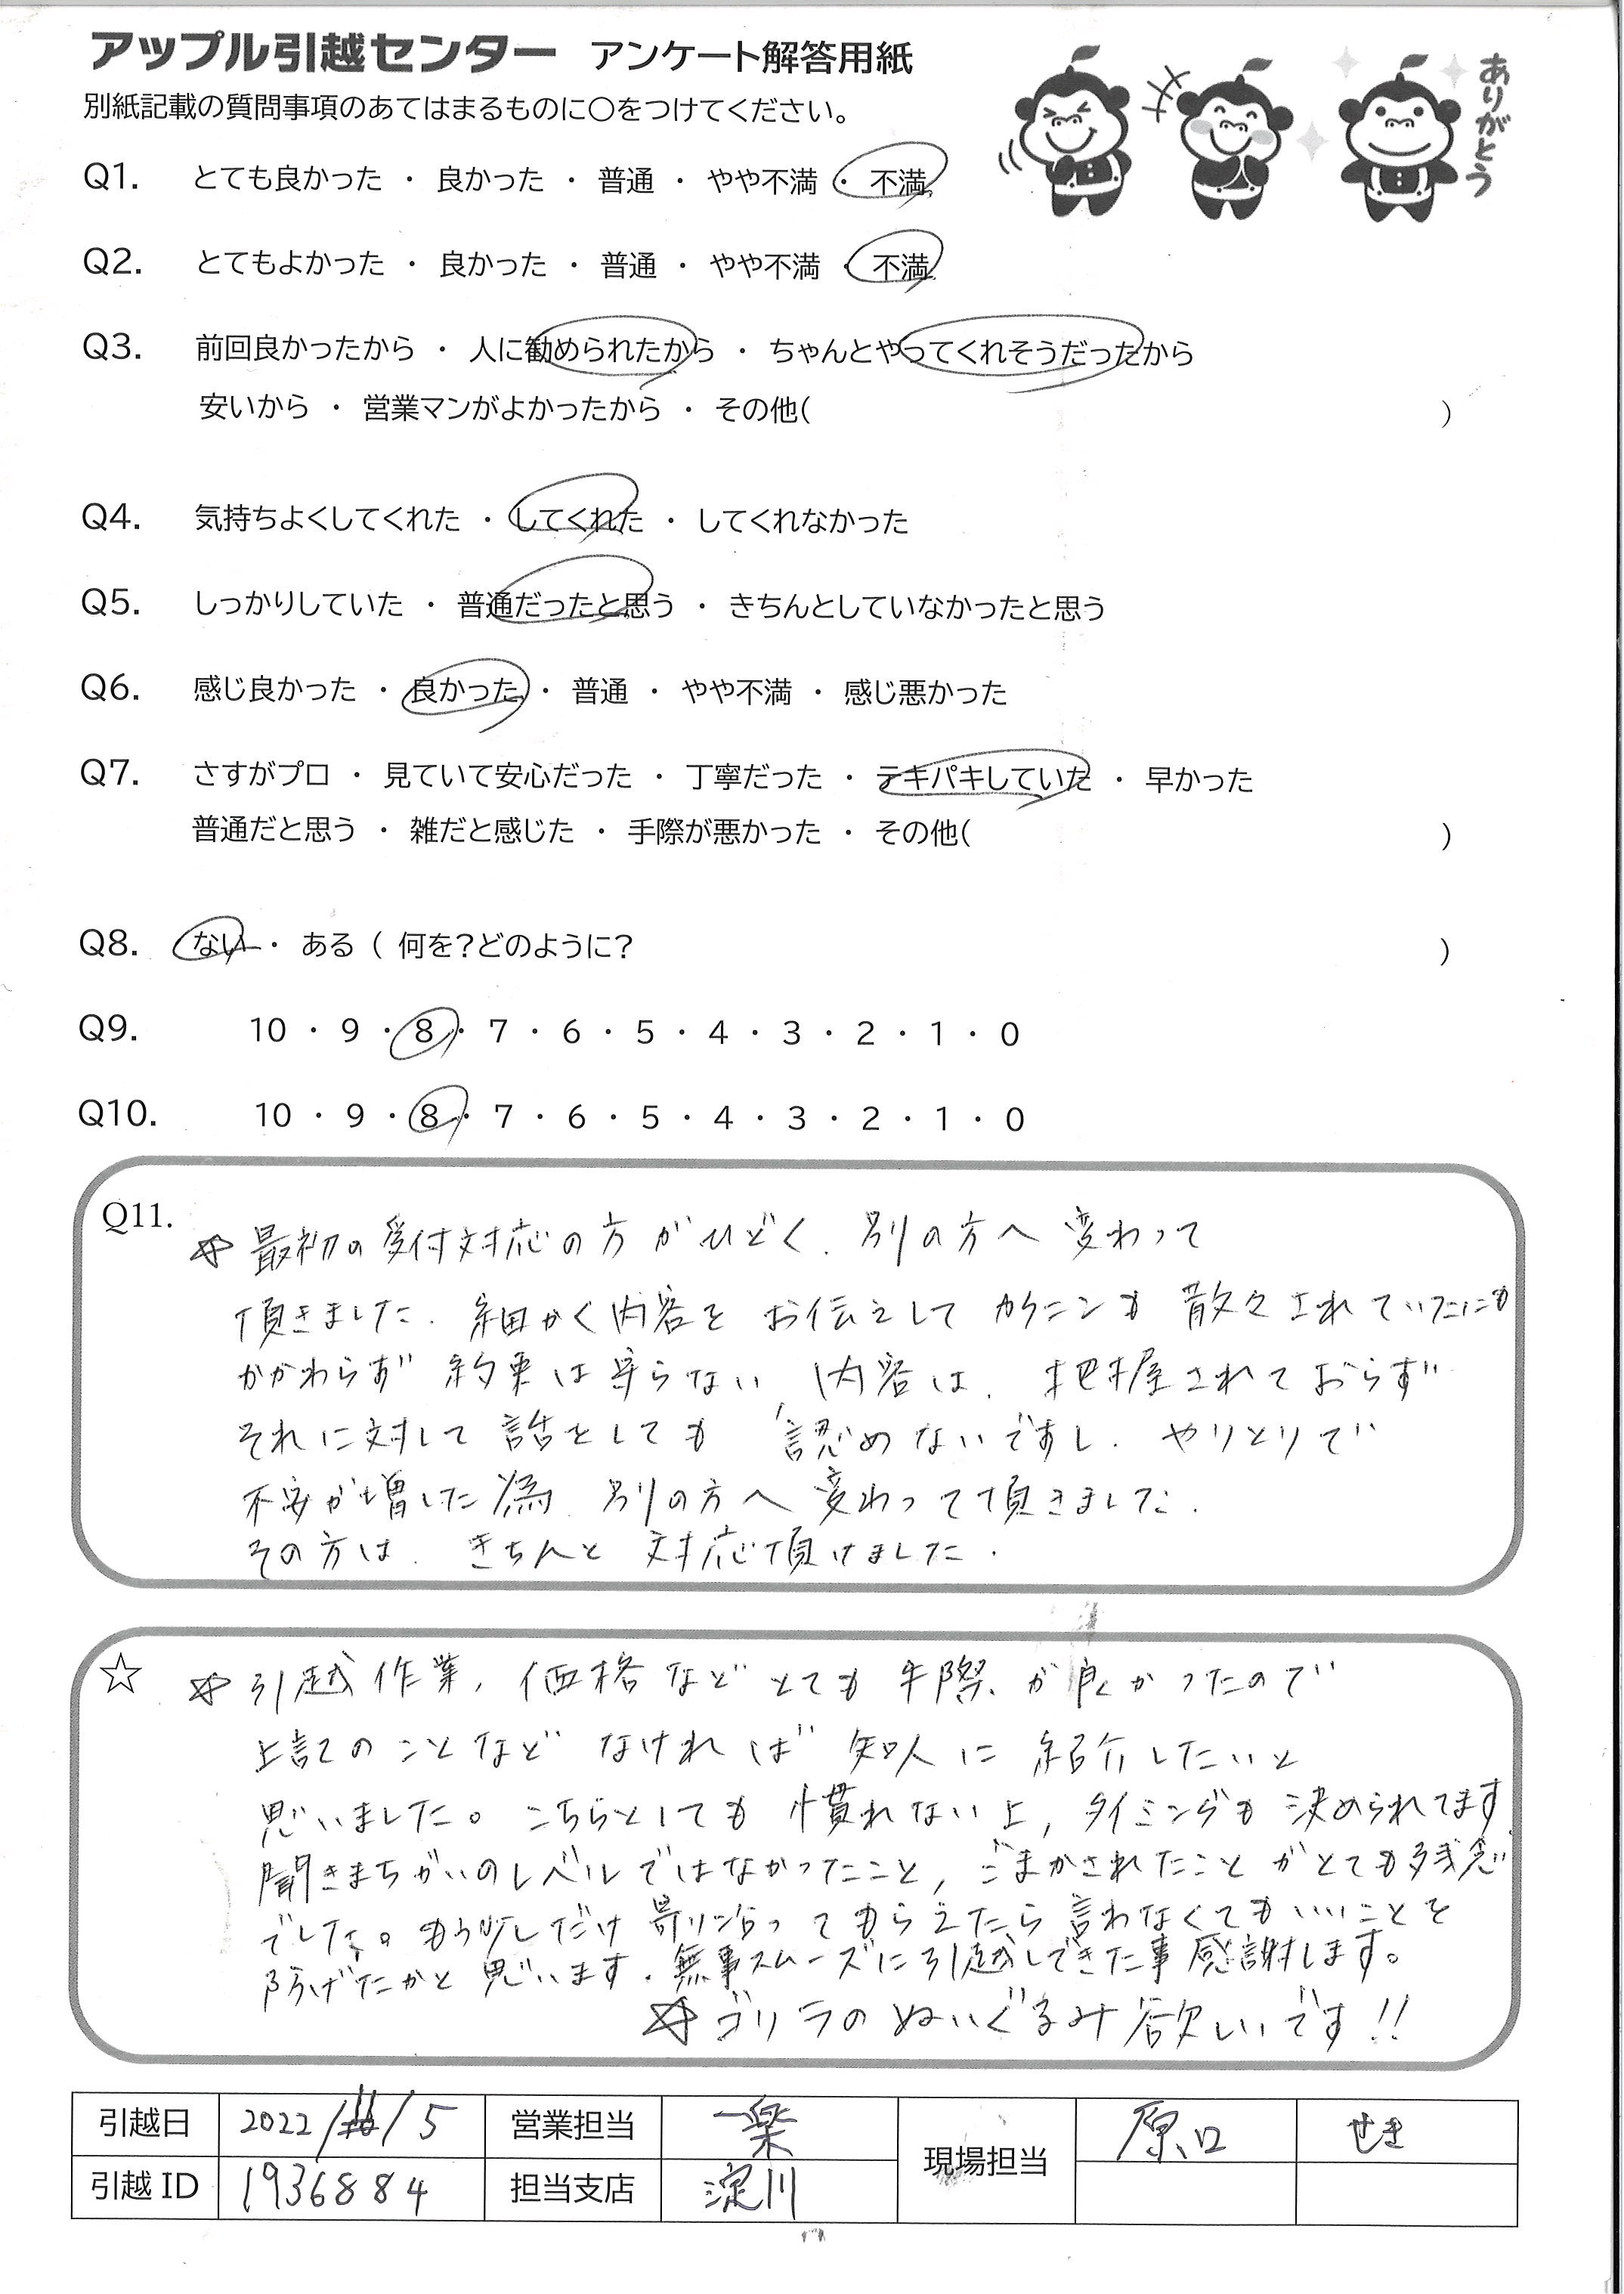 アップル引越センター アンケート解答用紙
別紙記載の質問事項のあてはまるものに○をつけてください。
ありがとう
Q1. とても良かった ・ 良かった ・ 普通 ・ やや不満 ・ 不満
Q2. とてもよかった ・ 良かった ・ 普通 ・ やや不満 ・ 不満
Q3. 前回良かったから ・ 人に勧められたから ・ ちゃんとやってくれそうだったから
安いから ・ 営業マンがよかったから ・ その他( )
Q4. 気持ちよくしてくれた ・ してくれた ・ してくれなかった
Q5. しっかりしていた ・ 普通だったと思う ・ きちんとしていなかったと思う
Q6. 感じ良かった ・ 良かった ・ 普通 ・ やや不満 ・ 感じ悪かった
Q7. さすがプロ ・ 見ていて安心だった ・ 丁寧だった ・ テキパキしていた ・ 早かった
普通だと思う ・ 雑だと感じた ・ 手際が悪かった ・ その他( )
Q8. ない ・ ある ( 何を?どのように? )
Q9. 10 ・ 9 ・ 8 ・ 7 ・ 6 ・ 5 ・ 4 ・ 3 ・ 2 ・ 1 ・ 0
Q10. 10 ・ 9 ・ 8 ・ 7 ・ 6 ・ 5 ・ 4 ・ 3 ・ 2 ・ 1 ・ 0
Q11. ☆ 最初の受付対応の方がひどく、別の方へ変わって
頂きました. 細かく内容をお伝えしてカクニンも散々されていたにも
かかわらず 約束は守らない、内容は、把握されておらず
それに対して話をしても 認めないですし、やりとりで
不安が増した為 別の方へ変わって頂きました.
その方は、きちんと対応頂けました.
☆ ☆ 引越作業, 価格などとても手際が良かったので
上記のことなどなければ 知人に紹介したいと
思いました。こちらとしても慣れない上, タイミングも決められてます
聞きまちがいのレベルではなかったこと, ごまかされたことがとても残念
でした。もう少しだけ寄り沿ってもらえたら言わなくてもいいことを
防げたかと思います. 無事スムーズに引越しできた事感謝します。
☆ ゴリラのぬいぐるみ欲しいです!!
引越日 2022/ /5 営業担当 一楽 現場担当 原口 せき
引越 ID 1936884 担当支店 淀川